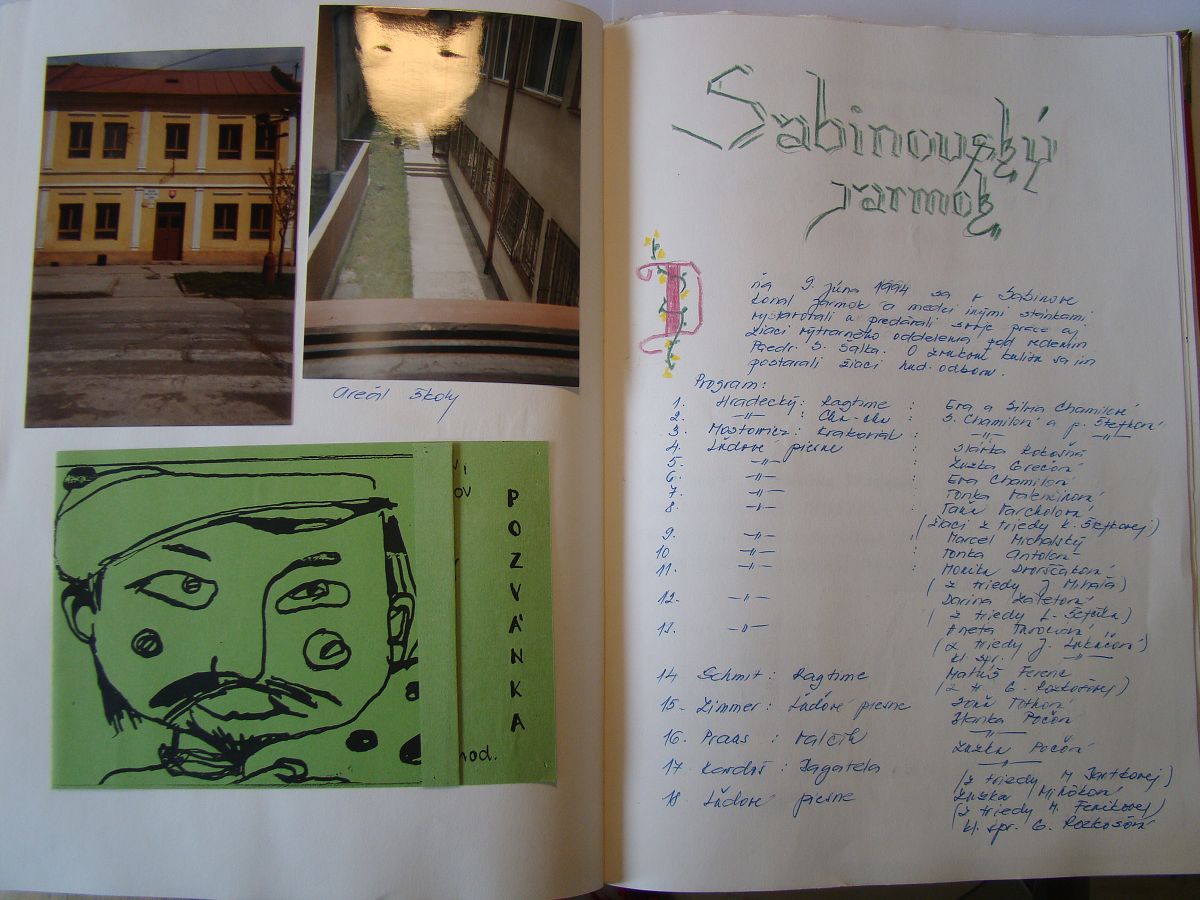 areál školy
POZVÁNKA
OV
hod.
Sabinovský
jarmok
D
ňa 9. júna 1994 sa v Sabinove
konal jarmok a medzi inými stánkami
vystavovali a predávali svoje práce aj
žiaci výtvarného oddelenia pod vedením
Paedr. S. Šalka. O zvukovú kulisu sa im
postarali žiaci hud. odboru.
Program:
1. Hradecký: Ragtime : Eva a Silvia Chamilové
2. -"- : Cha-cha : S. Chamilová a p. Štefková
3. : Krakoviak : -"- -"-
4. Ľúdové piesne :
5. -"- : Zuzka
6. -"- : Eva Chamilová
7. -"- : Tonka Valentínová
8. -"- :
(žiaci z triedy K. )
9. -"- : Marcel Michalský
10 -"- : Tonka
11. -"- : Monika Dvorščáková
(z triedy J. Mihaľa)
12. -"- Darina
(z triedy
13. -"- Aneta
(z triedy J. Lukáčová)
kl. spr. -"-
14 Schmit: Ragtime Matúš Ferenc
(z tr. G. Rozkošovej)
15. Zimmer: Ľúdové piesne
Blanka Počová
-"-
16. Praus : Valčík Zuzka Počová
-"-
17 Kardoš: Bagatela (z triedy M. Bartkovej)
18. Ľúdové piesne Zuzka Miháková
(z triedy M. Fenikovej)
kl. spr. G. Rozkošová